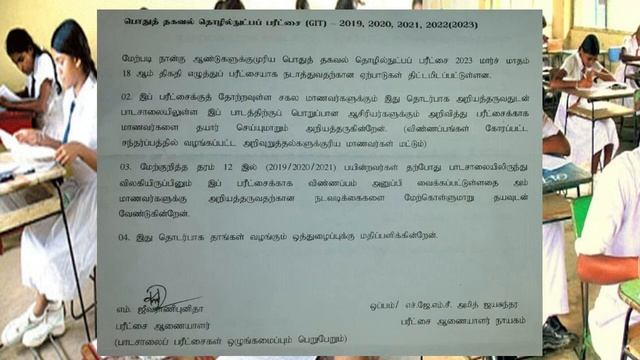 பொதுத் தகவல் தொழில்நுட்பப் பரீட்சை (GIT) – 2019, 2020, 2021, 2022(2023)
மேற்படி நான்கு ஆண்டுகளுக்குமுரிய பொதுத் தகவல் தொழில்நுட்பப் பரீட்சை 2023 மார்ச் மாதம்
18 ஆம் திகதி எழுத்துப் பரீட்சையாக நடாத்துவதற்கான ஏற்பாடுகள் திட்டமிடப்பட்டுள்ளன.
02. இப் பரீட்சைக்குத் தோற்றவுள்ள சகல மாணவர்களுக்கும் இது தொடர்பாக அறியத்தருவதுடன்
பாடசாலையிலுள்ள இப் பாடத்திற்குப் பொறுப்பான ஆசிரியர்களுக்கும் அறிவித்து பரீட்சைக்காக
மாணவர்களை தயார் செய்யுமாறும் அறியத்தருகின்றேன். (விண்ணப்பங்கள் கோரப்பட்ட
சந்தர்ப்பத்தில் வழங்கப்பட்ட அறிவுறுத்தல்களுக்குரிய மாணவர்கள் மட்டும்)
03. மேற்குறித்த தரம் 12 இல் (2019/2020/2021) பயின்றவர்கள் தற்போது பாடசாலையிலிருந்து
விலகியிருப்பினும் இப் பரீட்சைக்காக விண்ணப்பம் அனுப்பி வைக்கப்பட்டுள்ளதை அம்
மாணவர்களுக்கு அறியத்தருவதற்கான நடவடிக்கைகளை மேற்கொள்ளுமாறு தயவுடன்
வேண்டுகின்றேன்.
04. இது தொடர்பாக தாங்கள் வழங்கும் ஒத்துழைப்புக்கு மதிப்பளிக்கிறேன்.
எம். ஜீவராணிபுனிதா
பரீட்சை ஆணையாளர்
(பாடசாலைப் பரீட்சைகள் ஒழுங்கமைப்பும் பெறுபேறும்)
ஒப்பம்/ எச்.ஜே.எம்.சீ. அமித் ஜயசுந்தர
பரீட்சை ஆணையாளர் நாயகம்